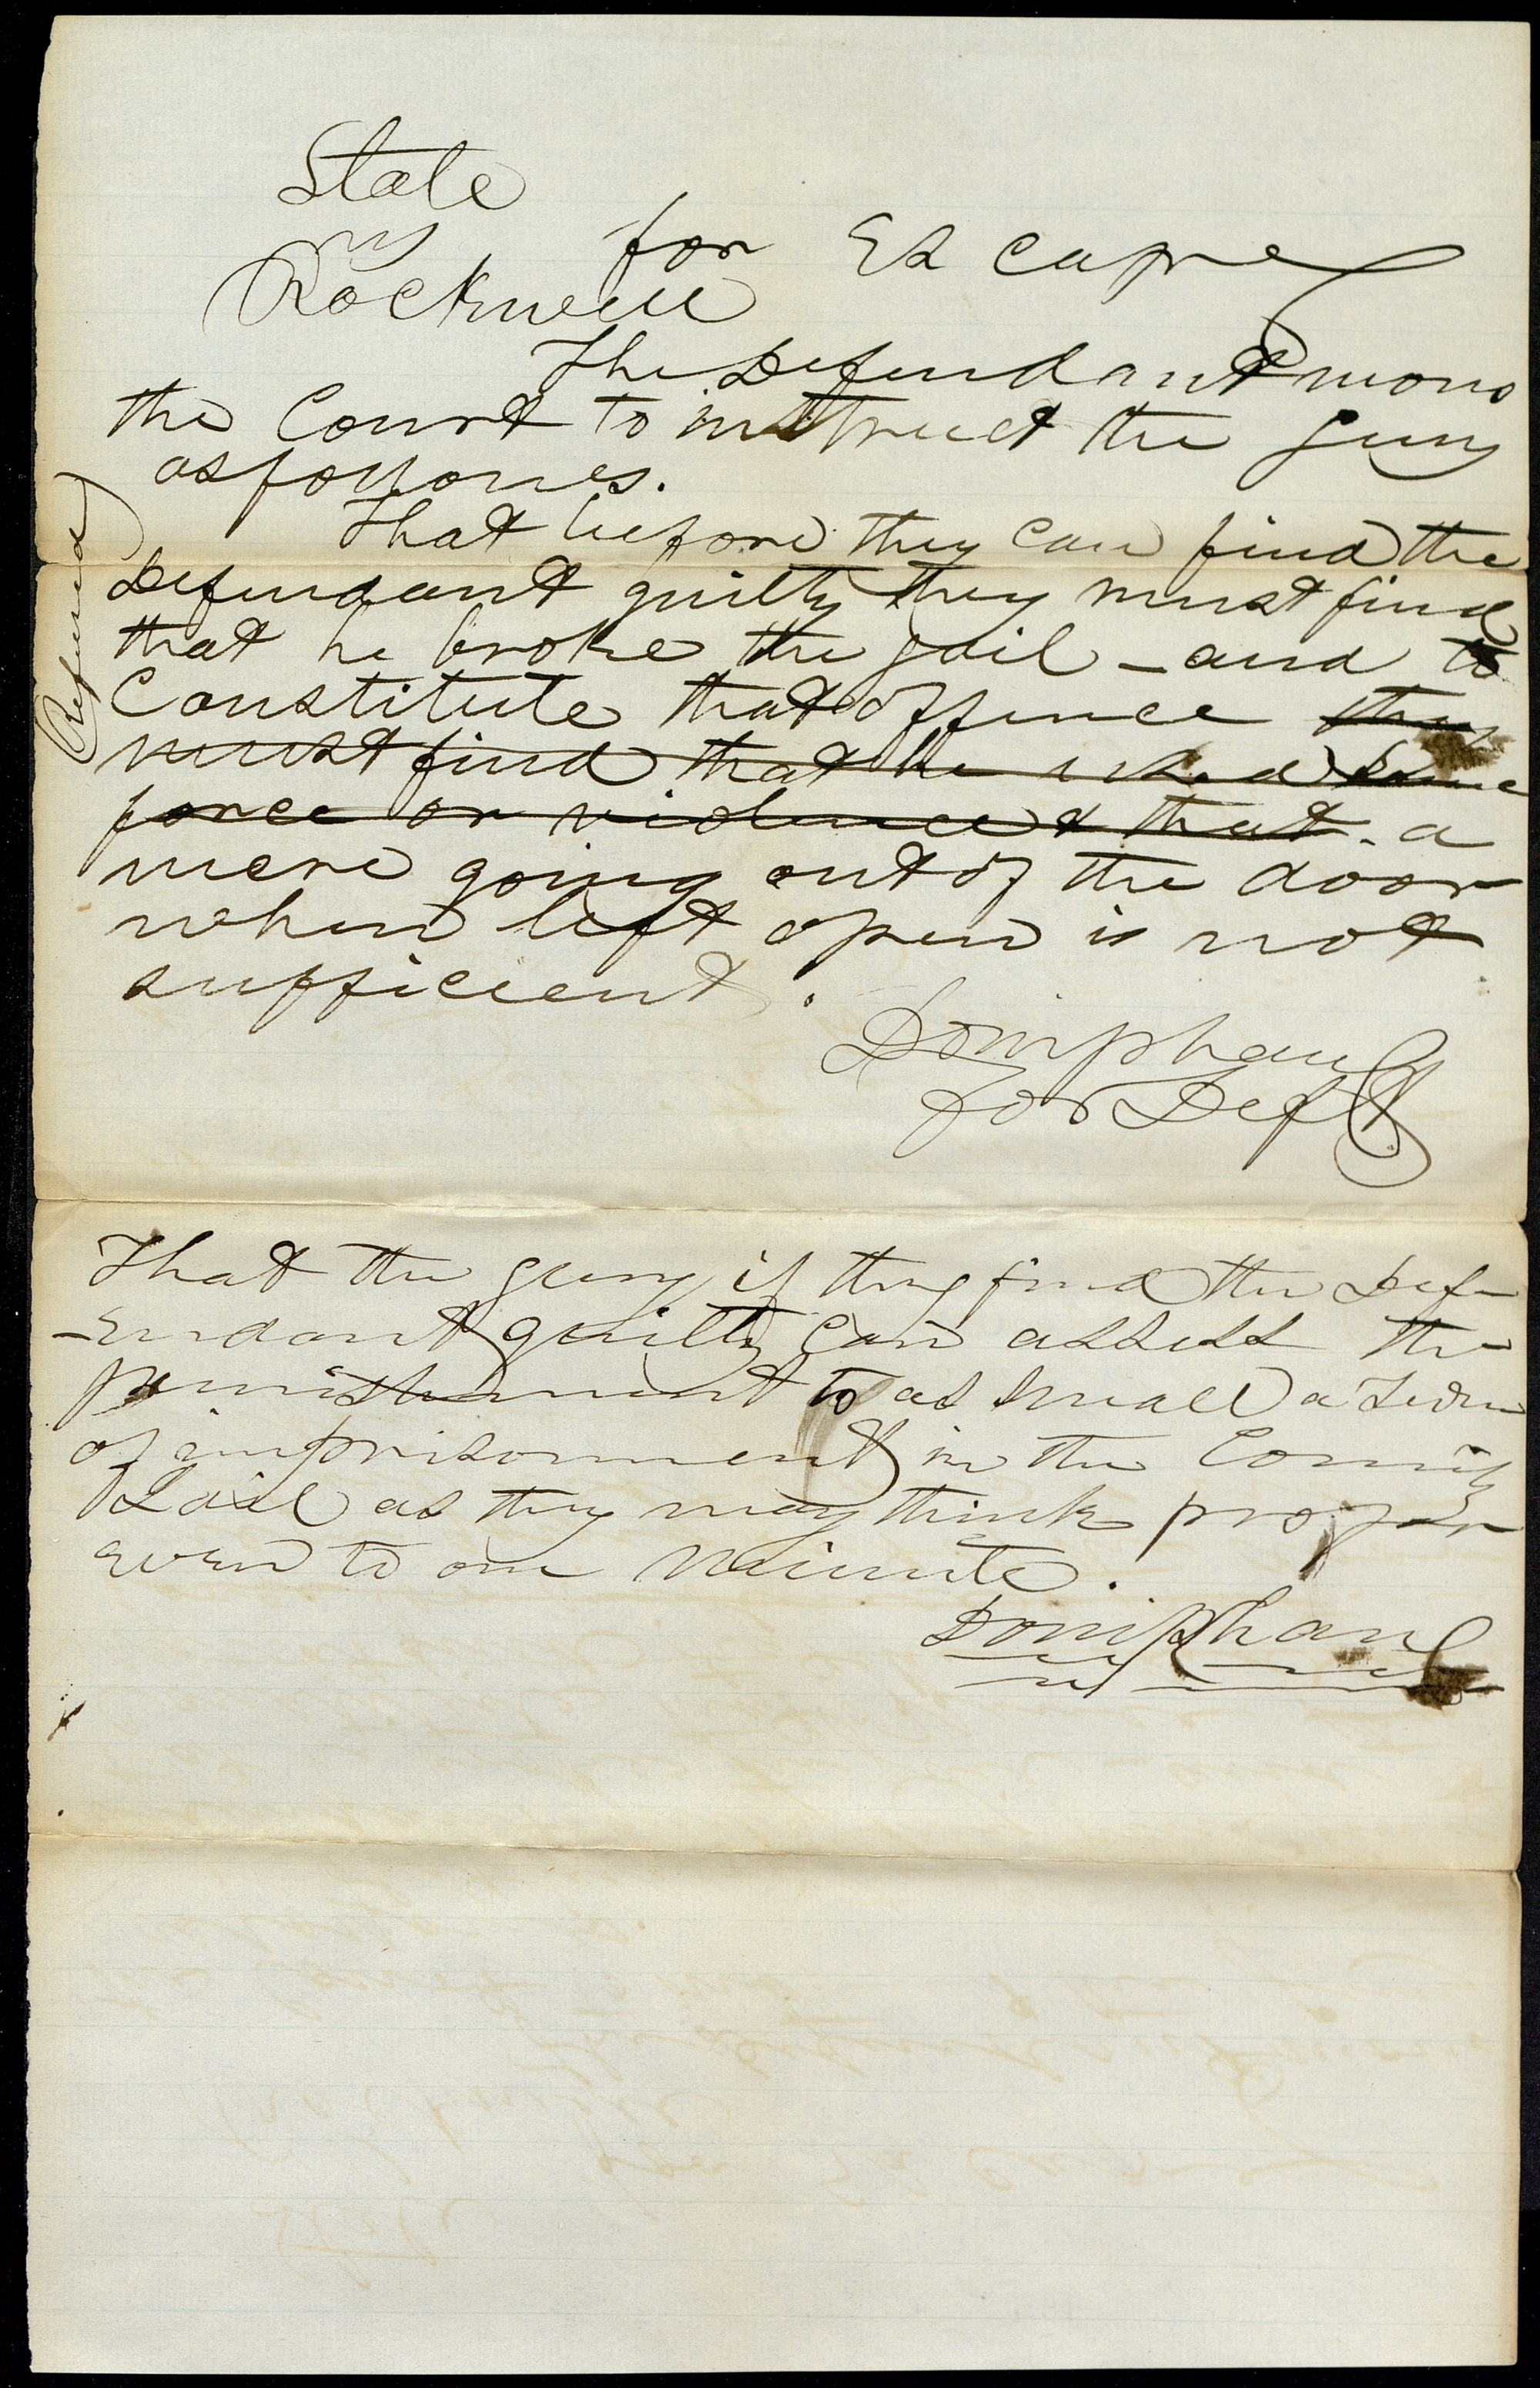 State
vs
for Escape
Rockwell
The Defendant moves
the Court to instruct the jury
as follows.
That before they can find the
Defendant guilty they must find
that he broke the jail - and to
Constitute that offence they
must find that he used some
force or violence & that - a
mere going out of the door
when left open is not
sufficient.
Doniphan
for Deft
(Refused)
That the jury if they find the Def
-endant guilty can assess the
punishment to as small a term
of imprisonment in the County
Jail as they may think proper
even to one minute.
Doniphan